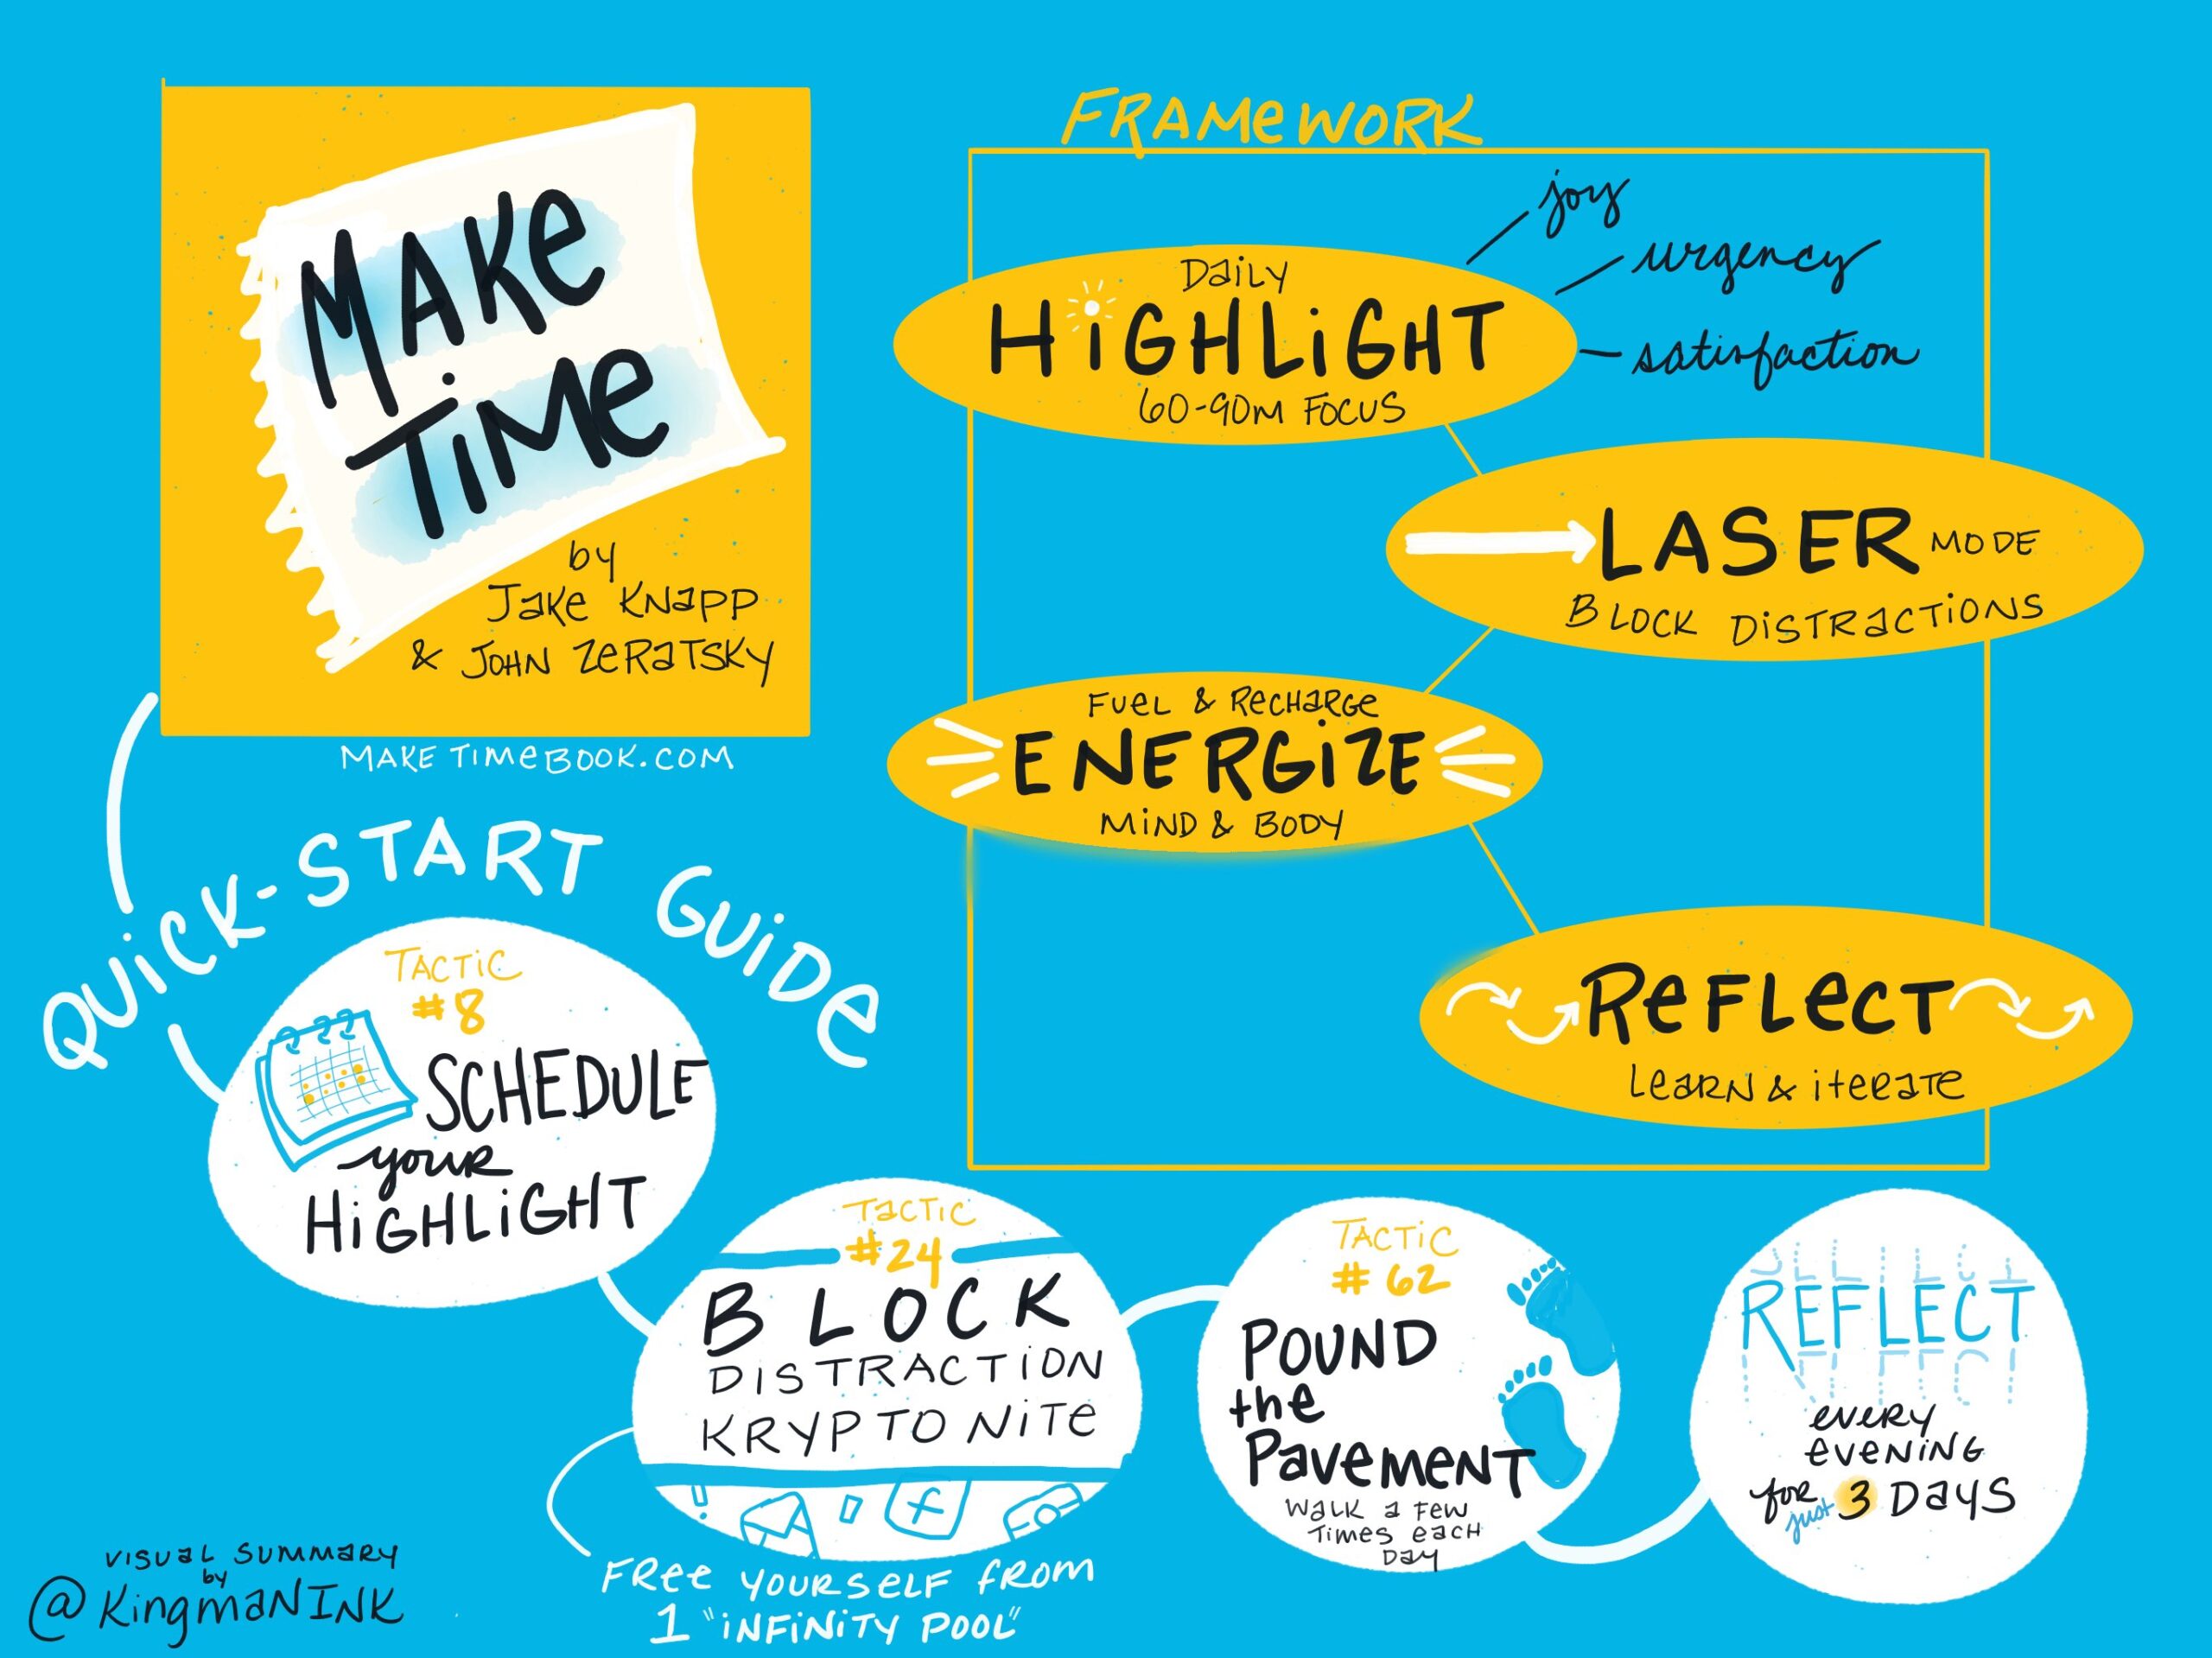 MAKE
TIME
by
Jake Knapp
& John Zeratsky
MAKETIMEBOOK.COM
FRAMEWORK
joy
urgency
satisfaction
Daily
HIGHLIGHT
60-90M FOCUS
LASER MODE
BLOCK DISTRACTIONS
FUEL & RECHARGE
ENERGIZE
MIND & BODY
REFLECT
LEARN & ITERATE
QUICK-START GUIDE
TACTIC
#8
SCHEDULE
your
HIGHLIGHT
TACTIC
#24
BLOCK
DISTRACTION
KRYPTONITE
f
FREE YOURSELF FROM
1 "INFINITY POOL"
TACTIC
#62
POUND
the
PAVEMENT
WALK a FEW
TIMES EACH
DAY
REFLECT
EVERY
EVENING
for just 3 DAYS
VISUAL SUMMARY
by
@KingmanINK